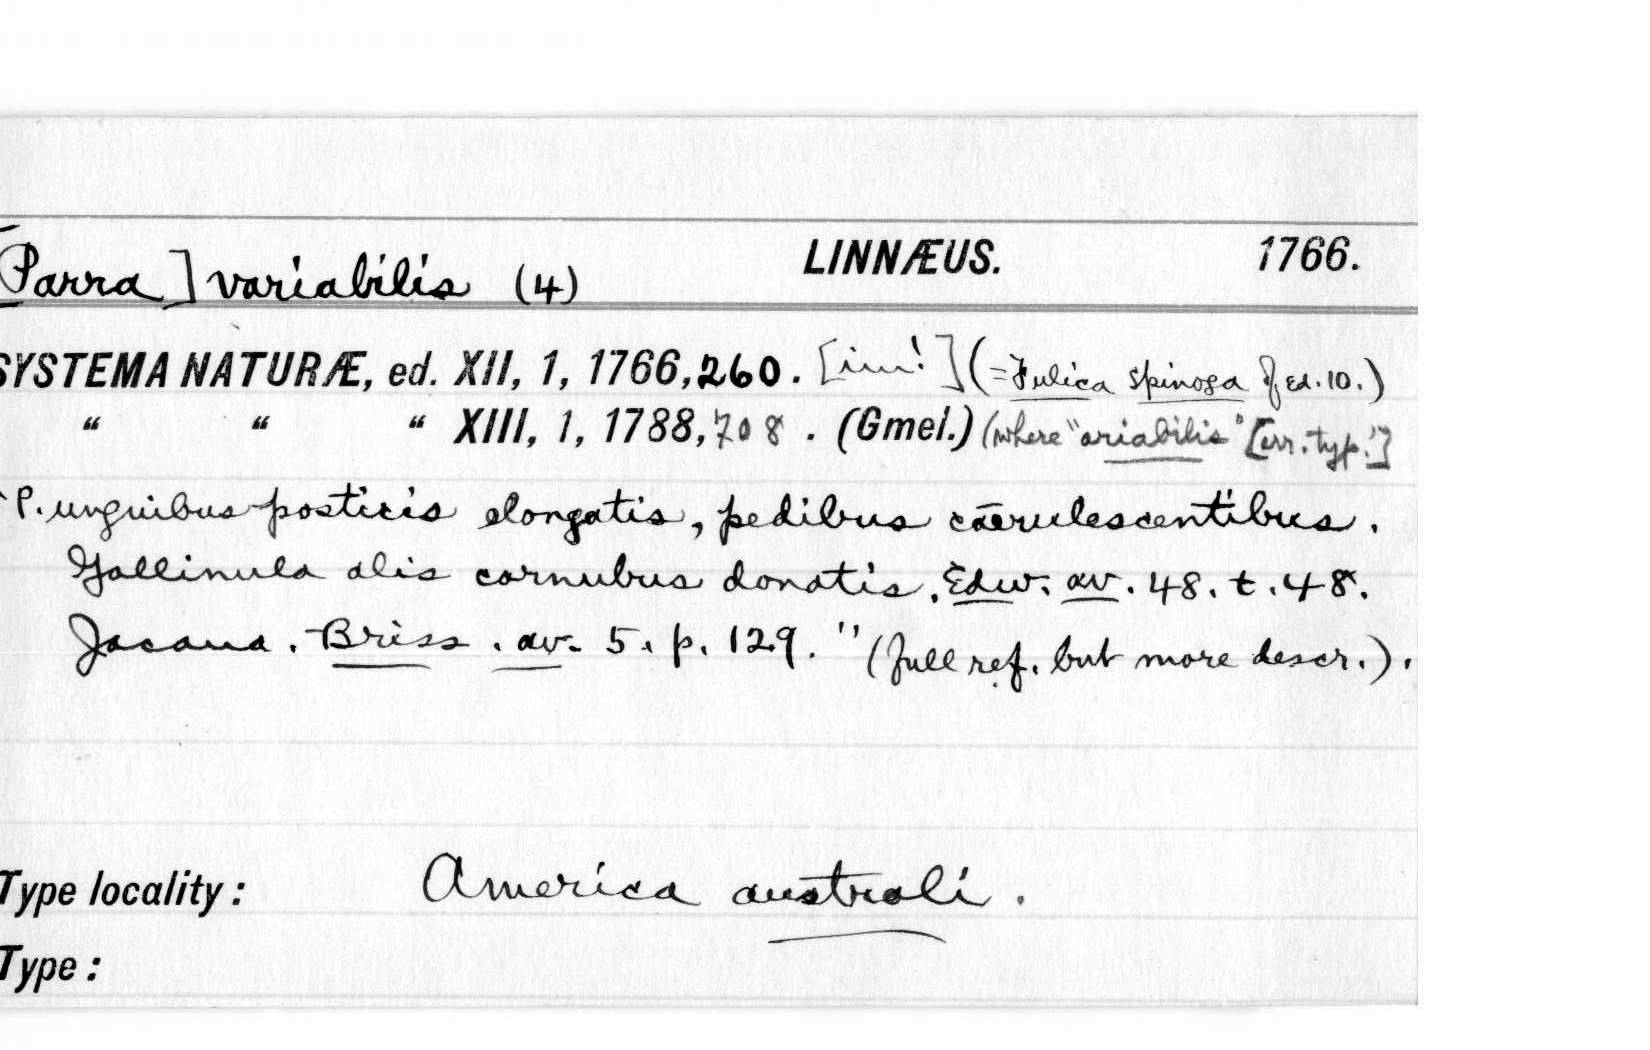 [Parra] variabilis (4) LINNÆUS. 1766.
SYSTEMA NATURÆ, ed. XII, 1, 1766, 260. [im!] (=Fulica spinosa of Ed. 10.)
“ “ “ XIII, 1, 1788, 708. (Gmel.) (where "ariabilis" [err. typ.!]
"P. unguibus posticis elongatis, pedibus cærulescentibus.
Gallinula alis cornubus donatis. Edw. av. 48. t. 48.
Jacana. Briss. av. 5. p. 129." (full ref. but more descr.).
Type locality: America australi.
Type: